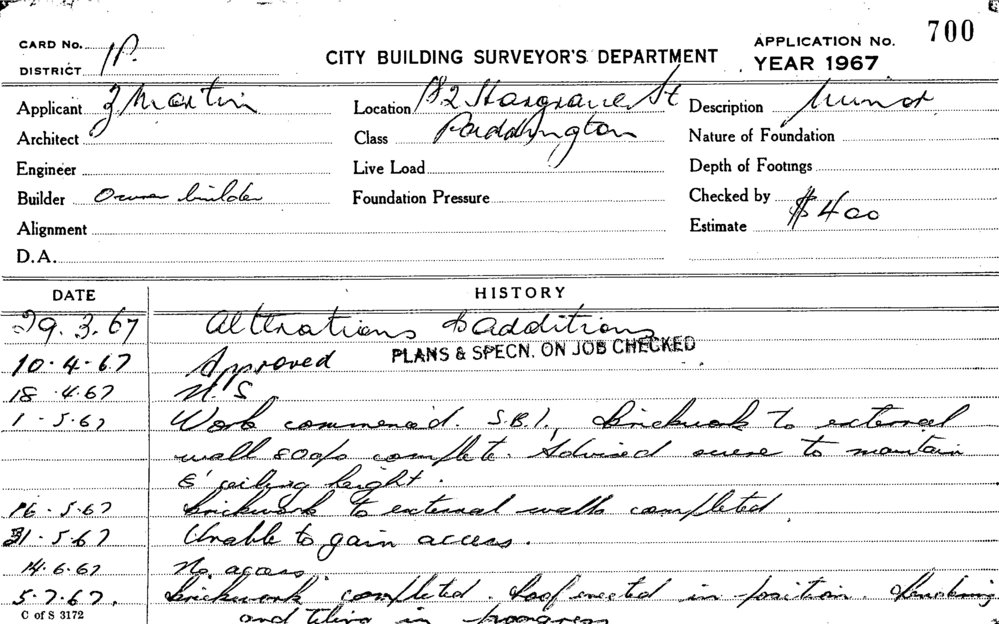 700
CARD No.
DISTRICT 1P.
CITY BUILDING SURVEYOR'S DEPARTMENT
APPLICATION No.
YEAR 1967
Applicant Z Martin Location 182 Hargrave St Description Minor
Architect Class Paddington Nature of Foundation
Engineer Live Load Depth of Footings
Builder Owner builder Foundation Pressure Checked by
Alignment Estimate $400
D.A.
DATE HISTORY
29.3.67 Alterations & additions
PLANS & SPECN. ON JOB CHECKED
10.4.67 Approved
18.4.67 N.S.
1-5.67 Work commenced. S.B.I., brickwork to external
wall complete. Advised to maintain
8' ceiling height.
16-5.67 brickwork to external walls completed
31-5.67 Unable to gain access.
14.6.67 No access.
5.7.67. brickwork completed. Roof erected in position.
and tiling in progress
C of S 3172